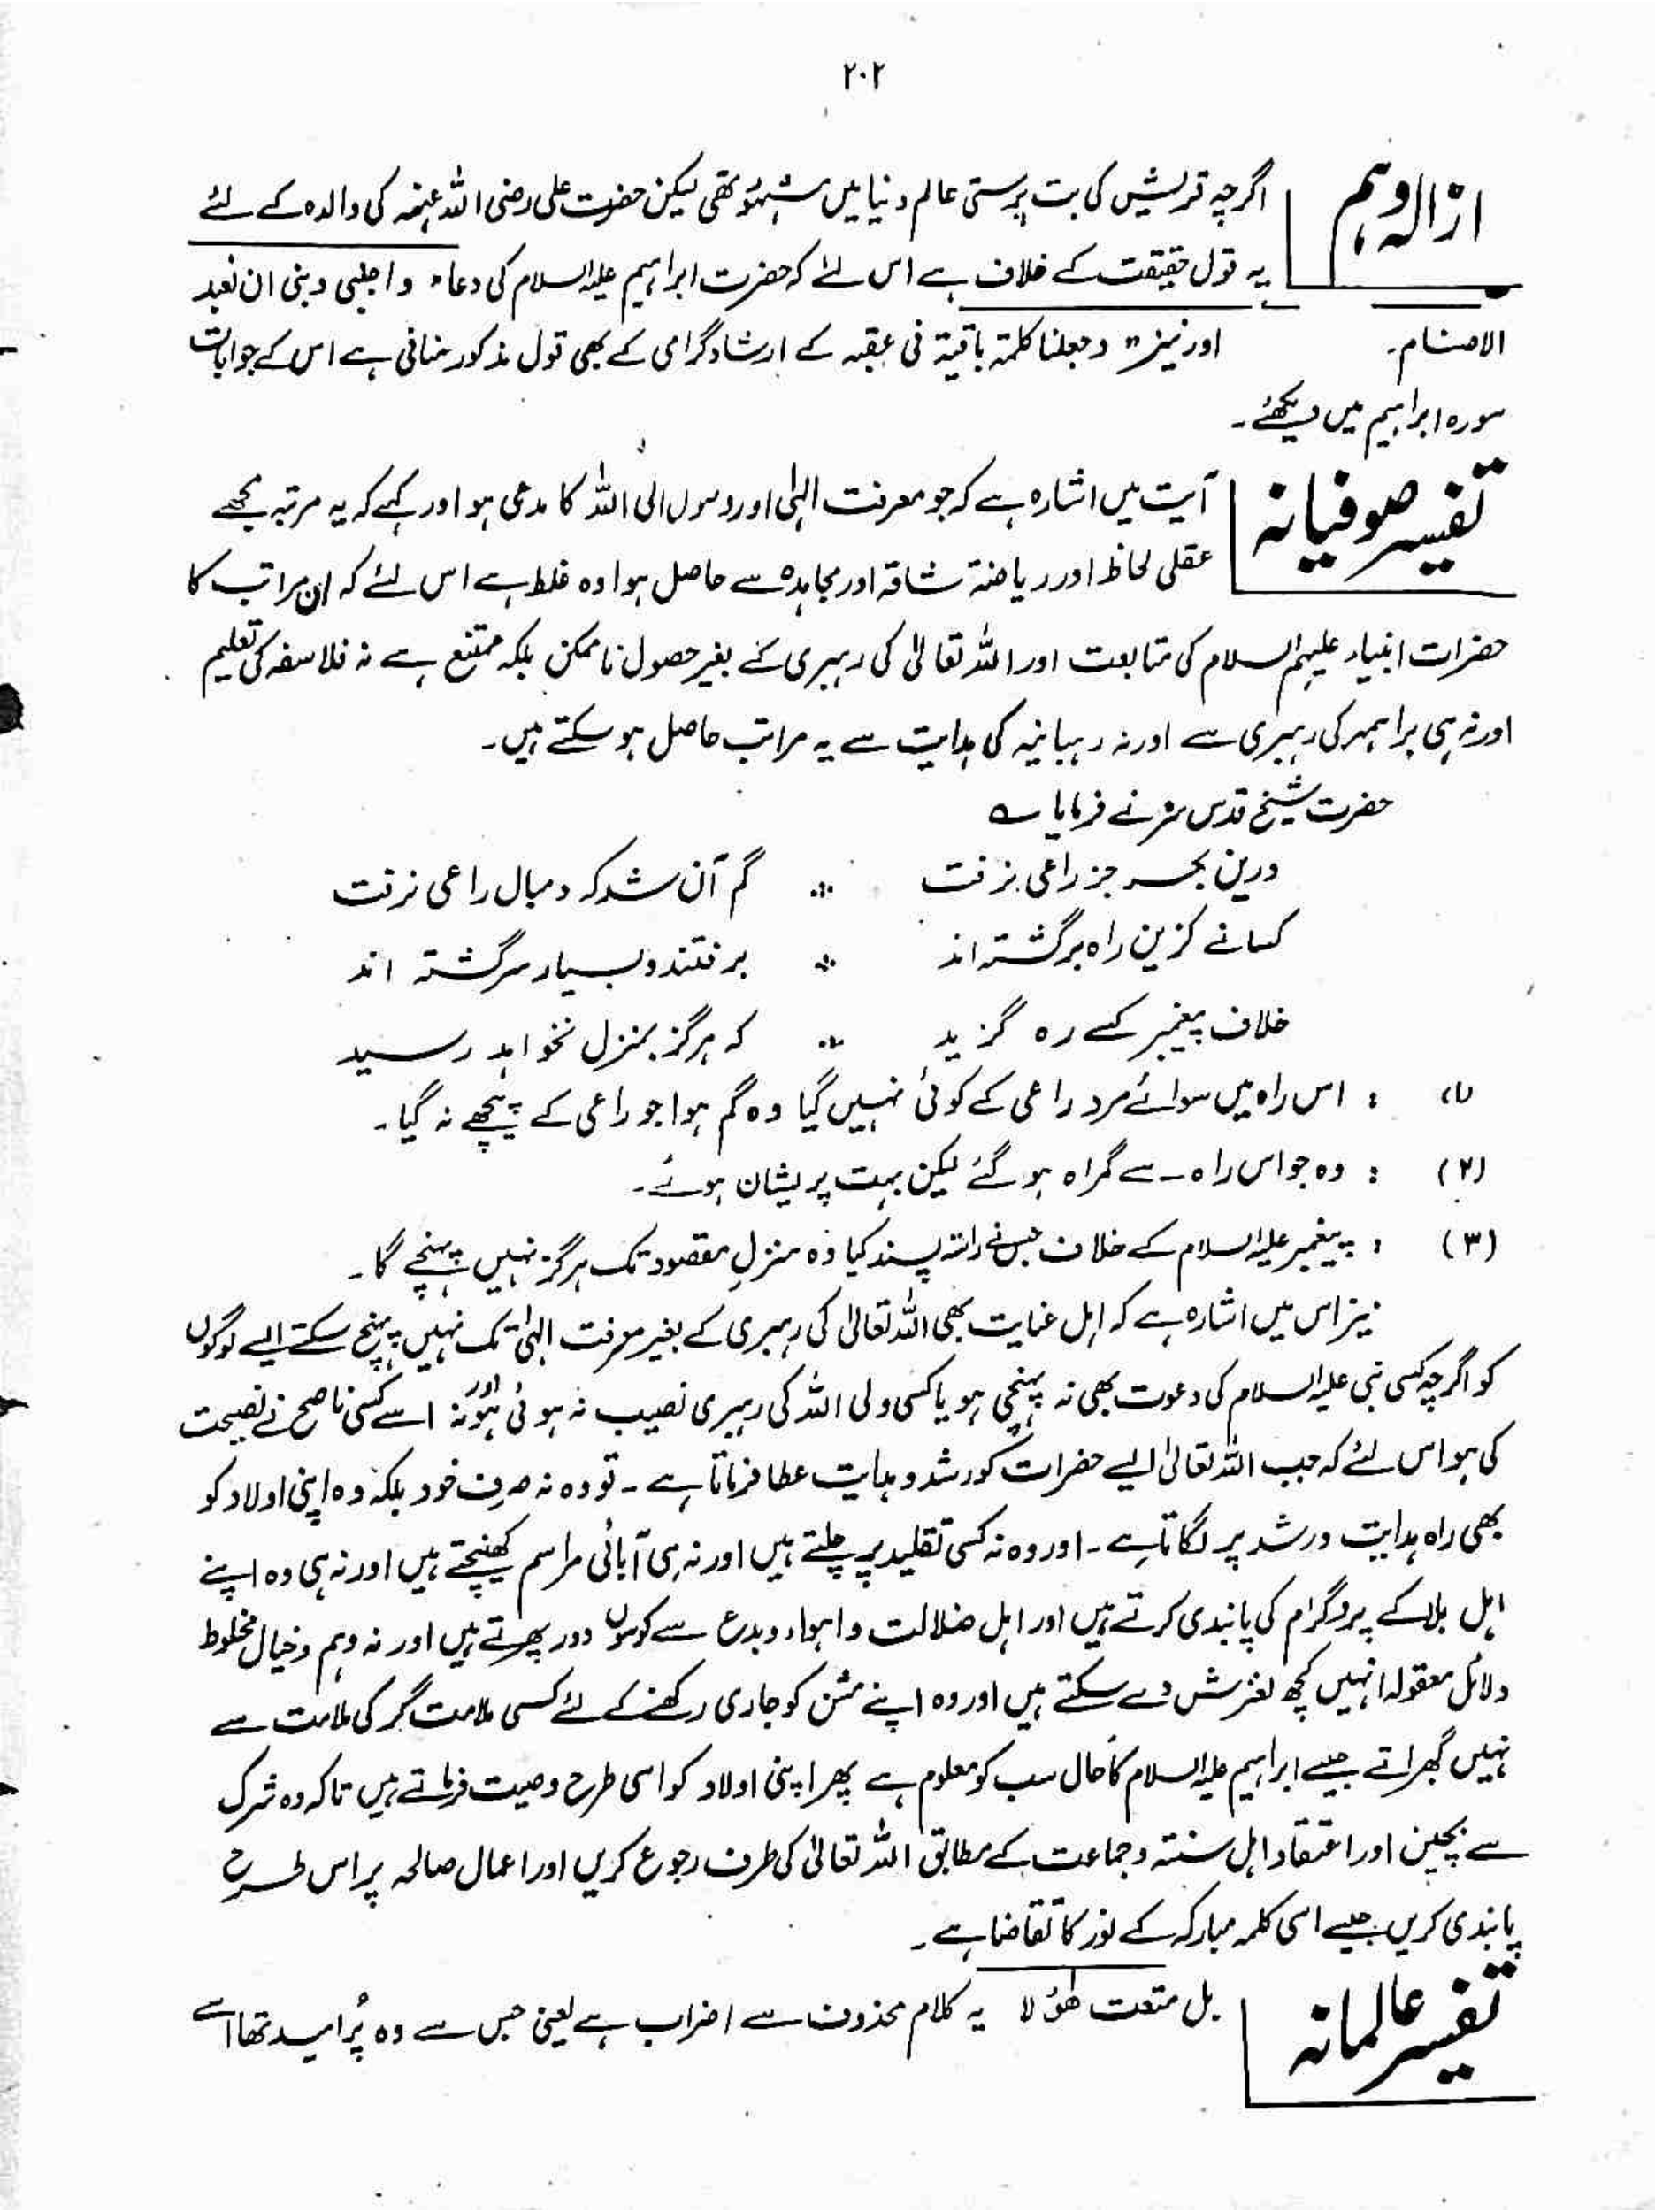 ۲۰۲
ازالہ وہم
اگرچہ قریش کی بت پرستی عالم دنیا میں مشہور تھی لیکن حضرت علی رضی اللہ عنہ کی والدہ کے لئے
یہ قول حقیقت کے خلاف ہے اس لئے کہ حضرت ابراہیم علیہ السلام کی دعاء واجنبی وبنی ان نعبد
الاصنام۔ اور نیز " وجعلنا کلمۃ باقیۃ فی عقبہ کے ارشاد گرامی کے بھی قول مذکور منافی ہے اس کے جوابات
سورہ ابراہیم میں دیکھئے۔
تفسیر صوفیانہ
آیت میں اشارہ ہے کہ جو معرفت الٰہی اور وصول الی اللہ کا مدعی ہو اور کہے کہ یہ مرتبہ مجھے
عقلی لحاظ اور ریاضۃ شاقہ اور مجاہدہ سے حاصل ہوا وہ غلط ہے اس لئے کہ ان مراتب کا
حضرات انبیاء علیہم السلام کی متابعت اور اللہ تعالیٰ کی رہبری کے بغیر حصول ناممکن بلکہ ممتنع ہے نہ فلاسفہ کی تعلیم
اور نہ ہی براہمہ کی رہبری سے اور نہ رہبانیہ کی ہدایت سے یہ مراتب حاصل ہو سکتے ہیں۔
حضرت شیخ قدس سرہ نے فرمایا ؎
درین بحر جز راعی نرفت ٭ گم آن شد کہ دمبال راعی نرفت
کسانے کزین راہ برگشتہ اند ٭ برفتند وبسیار سرگشتہ اند
خلاف پیغمبر کسے رہ گزید ٭ کہ ہرگز بمنزل نخواہد رسید
(۱) : اس راہ میں سوائے مرد راعی کے کوئی نہیں گیا وہ گم ہوا جو راعی کے پیچھے نہ گیا۔
(۲) : وہ جو اس راہ سے گمراہ ہو گئے لیکن بہت پریشان ہوئے۔
(۳) : پیغمبر علیہ السلام کے خلاف جس نے راستہ پسند کیا وہ منزلِ مقصود تک ہرگز نہیں پہنچے گا۔
نیز اس میں اشارہ ہے کہ اہل عنایت بھی اللہ تعالیٰ کی رہبری کے بغیر معرفت الٰہی تک نہیں پہنچ سکتے ایسے لوگوں
کو اگرچہ کسی نبی علیہ السلام کی دعوت بھی نہ پہنچی ہو یا کسی ولی اللہ کی رہبری نصیب نہ ہوئی ہو اور نہ اسے کسی ناصح نے نصیحت
کی ہو اس لئے کہ جب اللہ تعالیٰ ایسے حضرات کو رشد و ہدایت عطا فرماتا ہے۔ تو وہ نہ صرف خود بلکہ وہ اپنی اولاد کو
بھی راہ ہدایت ورشد پر لگاتا ہے۔ اور وہ نہ کسی تقلید پر چلتے ہیں اور نہ ہی آبائی مراسم کھینچتے ہیں اور نہ ہی وہ اپنے
اہل بلاد کے پروگرام کی پابندی کرتے ہیں اور اہل ضلالت واہواء وبدع سے کوسوں دور پھرتے ہیں اور نہ وہم وخیال مخلوط
دلائل معقولہ انہیں کچھ لغزش دے سکتے ہیں اور وہ اپنے مشن کو جاری رکھنے کے لئے کسی ملامت گر کی ملامت سے
نہیں گھبراتے جیسے ابراہیم علیہ السلام کا حال سب کو معلوم ہے پھر اپنی اولاد کو اسی طرح وصیت فرماتے ہیں تاکہ وہ شرک
سے بچیں اور اعتقاد اہل سنتہ وجماعت کے مطابق اللہ تعالیٰ کی طرف رجوع کریں اور اعمال صالحہ پر اس طرح
پابندی کریں جیسے اسی کلمہ مبارکہ کے نور کا تقاضا ہے۔
تفسیر عالمانہ
بل متعت ھٰؤلا یہ کلام محذوف سے اضراب ہے یعنی جس سے وہ پُر امید تھا اسے